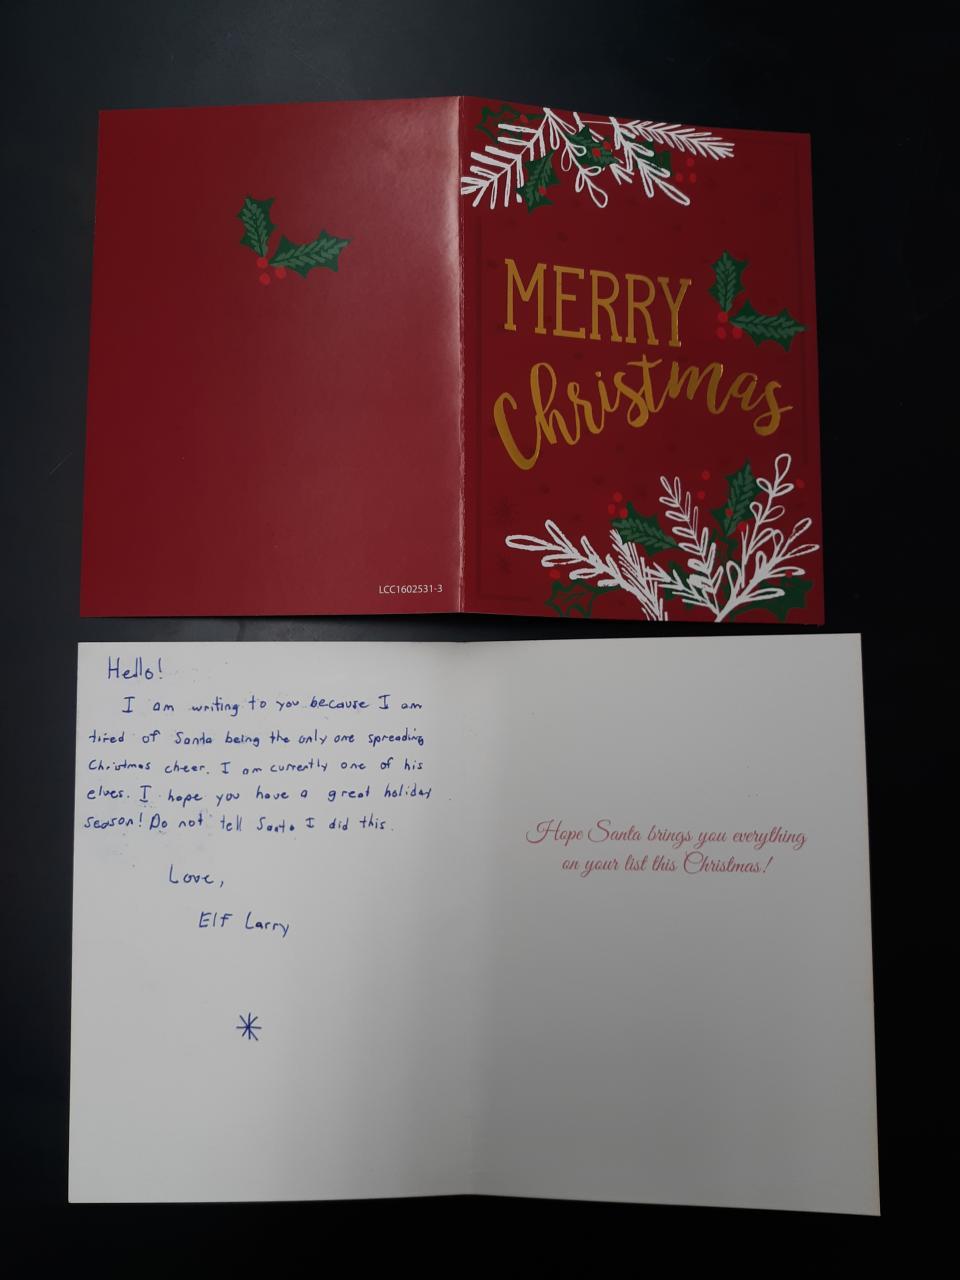 MERRY
Christmas
LCC1602531-3
Hello!
I am writing to you because I am
tired of Santa being the only one spreading
Christmas cheer. I am currently one of his
elves. I hope you have a great holiday
season! Do not tell Santa I did this.
Love,
Elf Larry
Hope Santa brings you everything
on your list this Christmas!